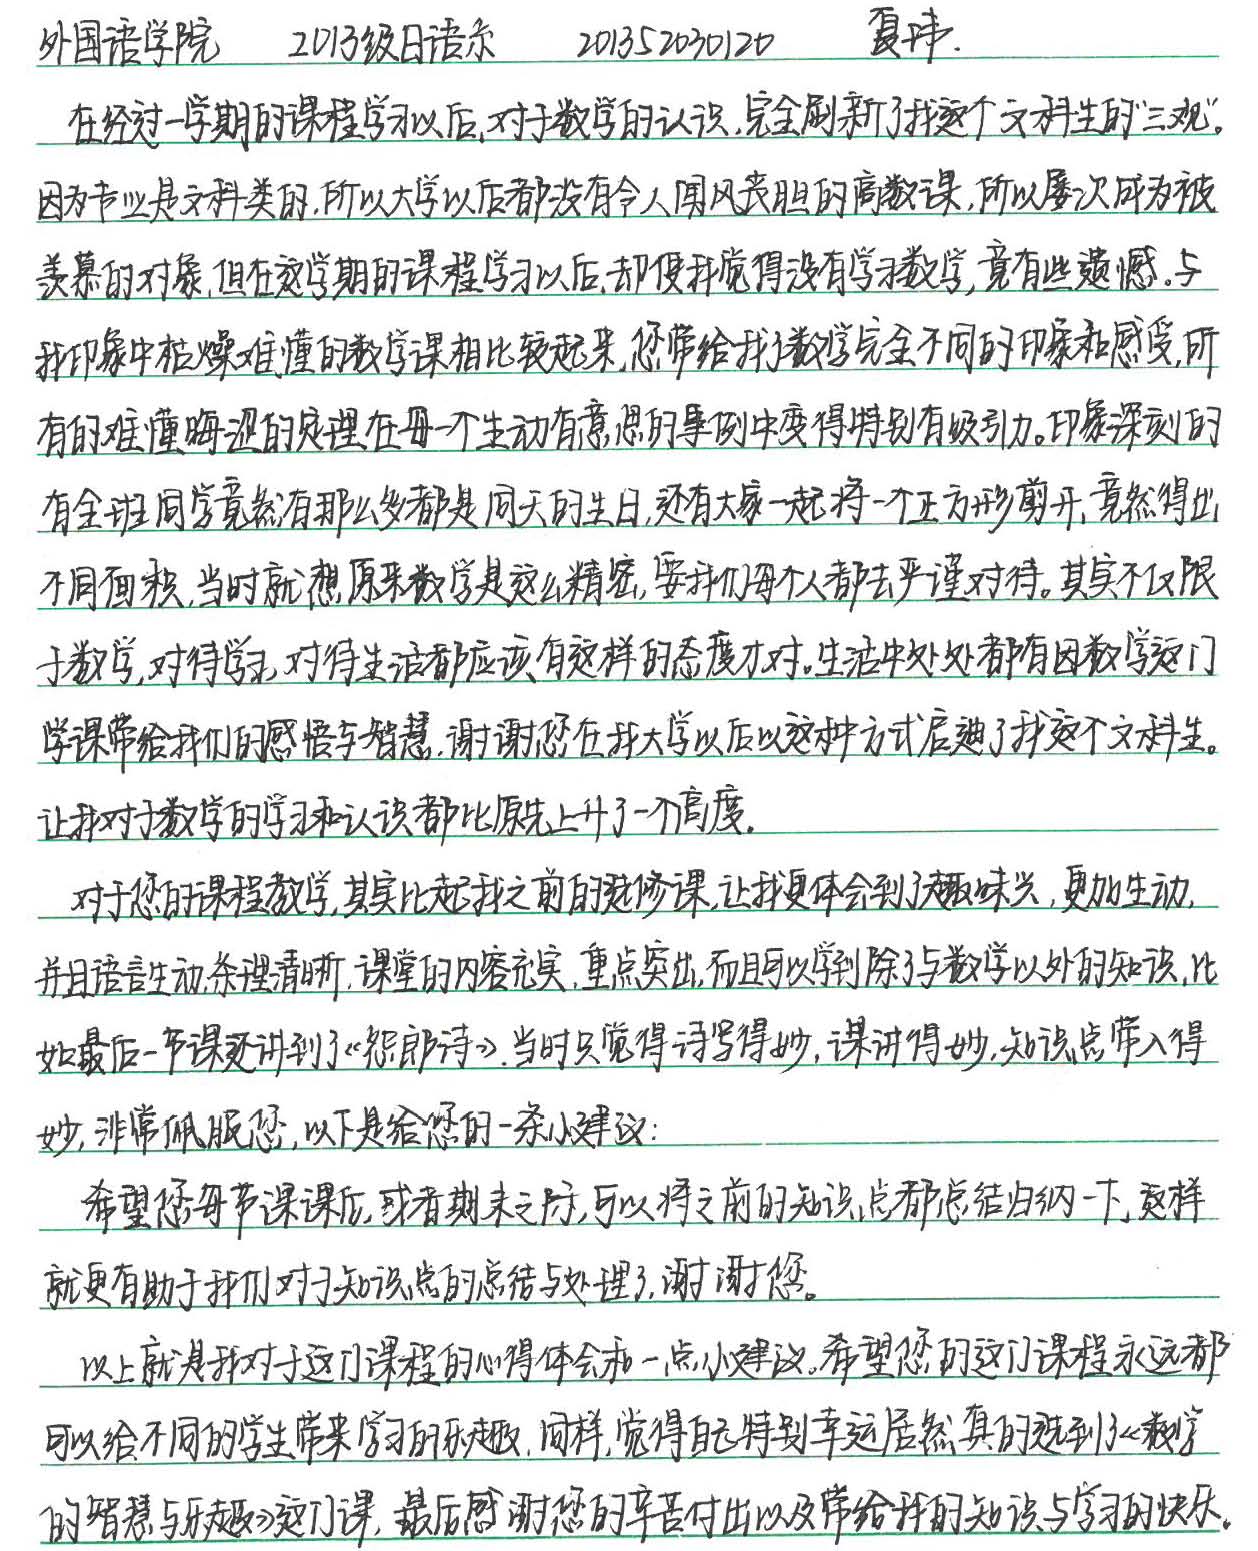 外国语学院 2013级日语系 201352030120 夏玮.
在经过一学期的课程学习以后,对于数学的认识,完全刷新了我这个文科生的"三观"。
因为专业是文科类的,所以大学以后都没有令人闻风丧胆的高数课,所以屡次成为被
羡慕的对象,但在这学期的课程学习以后,却使我觉得没有学习数学,竟有些遗憾。与
我印象中枯燥难懂的数学课相比较起来,您带给我了数学完全不同的印象和感受,所
有的难懂晦涩的定理在每一个生动有意思的事例中变得特别有吸引力。印象深刻的
有全班同学竟然有那么多都是同天的生日,还有大家一起将一个正方形剪开,竟然得出
不同面积,当时就想原来数学是这么精密,要我们每个人都去严谨对待。其实不仅限
于数学,对待学习,对待生活都应该有这样的态度才对。生活中处处都有因数学这门
学课带给我们的感悟与智慧,谢谢您在我大学以后以这种方式启迪了我这个文科生。
让我对于数学的学习和认识都比原先上升了一个高度。
对于您的课程教学,其实比起我之前的选修课,让我更体会到了趣味兴,更加生动,
并且语言生动,条理清晰,课堂的内容充实,重点突出,而且可以学到除了与数学以外的知识,比
如最后一节课还讲到了《怨郎诗》,当时只觉得诗写得妙,课讲得妙,知识点带入得
妙,非常佩服您,以下是给您的一条小建议:
希望您每节课课后,或者期末之际,可以将之前的知识点都总结归纳一下,这样
就更有助于我们对于知识点的总结与处理了,谢谢您。
以上就是我对于这门课程的心得体会和一点小建议。希望您的这门课程永远都
可以给不同的学生带来学习的乐趣,同样,觉得自己特别幸运居然真的选到了《数学
的智慧与乐趣》这门课,最后感谢您的辛苦付出以及带给我的知识与学习的快乐。